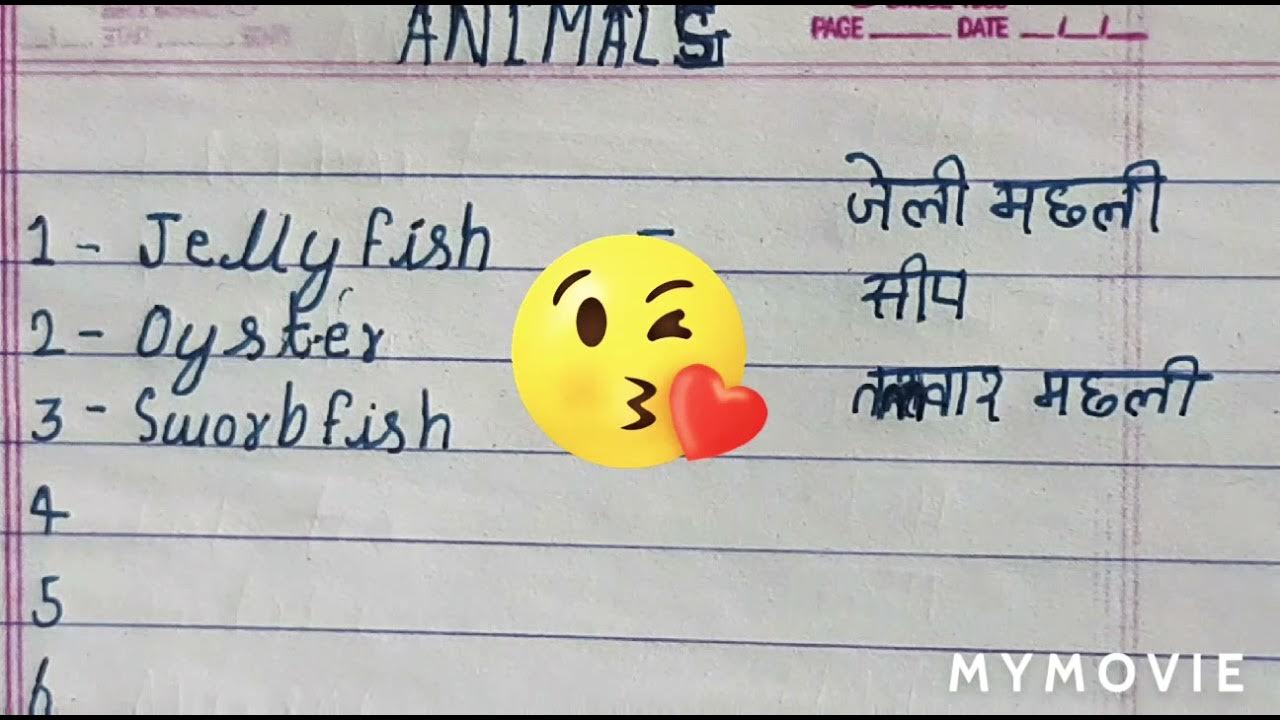 ANIMALS
PAGE DATE / /
1 - Jellyfish - जेली मछली
2 - Oyster सीप
3 - Sworbfish तलवार मछली
4
5
6
MYMOVIE